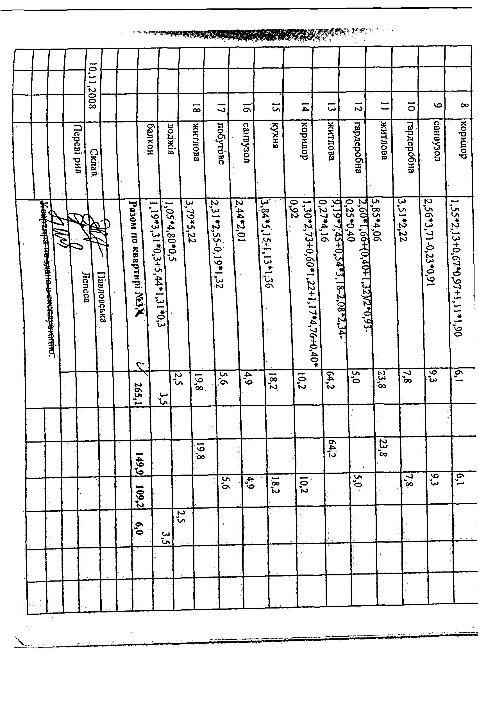 8 коридор 1,55*2,13+0,67*0,97+1,11*1,90 6,1 6,1
9 санвузол 2,56*3,71-0,23*0,91 9,3 9,3
10 гардеробна 3,51*2,22 7,8 7,8
11 житлова 5,85*4,06 23,8 23,8
12 гардеробна 2,60*1,66+(0,40+1,32)/2*0,93-
0,25*0,40 5,0 5,0
13 житлова 9,19*7,45+0,54*3,18-2,08*2,34-
0,27*4,16 64,2 64,2
14 коридор 1,30*2,73+0,60*1,22+1,17*4,76+0,40*
0,92 10,2 10,2
15 кухня 3,84*5,15-1,13*1,36 18,2 18,2
16 санвузол 2,44*2,01 4,9 4,9
17 побутове 2,31*2,55-0,19*1,32 5,6 5,6
18 житлова 3,79*5,22 19,8 19,8
лоджія 1,05*4,80*0,5 2,5 2,5
балкон 1,19*3,31*0,3+5,44*1,31*0,3 3,5 3,5
Разом по квартирі 265,1 149,9 109,2 6,0
10.11.2008 Склав Павловська
Перевірив Лепеса